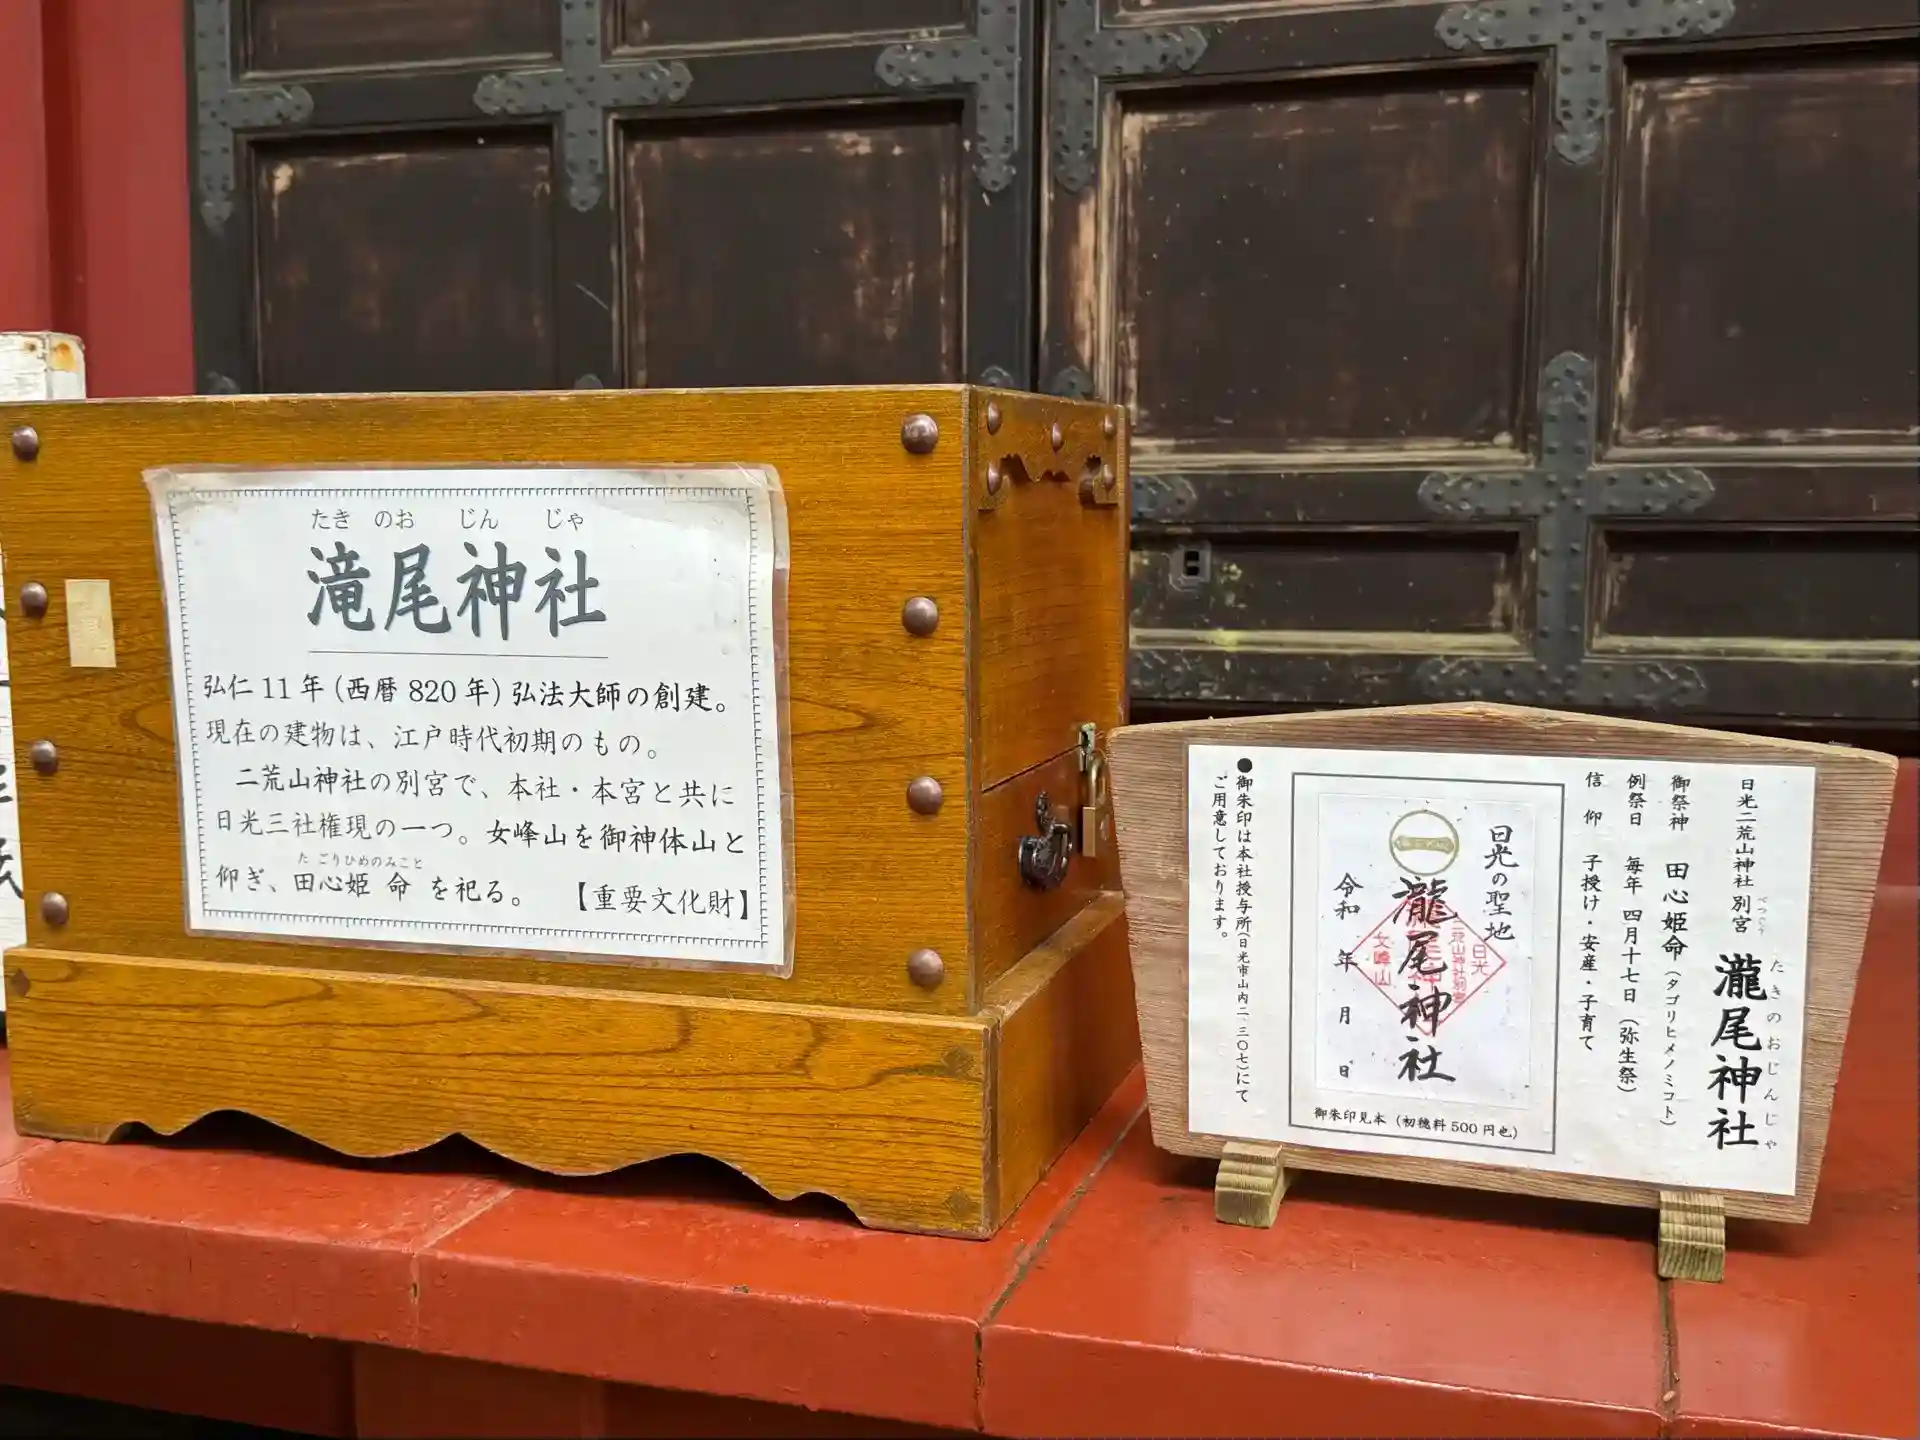 たき のお じん じゃ
滝尾神社
弘仁11年(西暦820年)弘法大師の創建。
現在の建物は、江戸時代初期のもの。
二荒山神社の別宮で、本社・本宮と共に
日光三社権現の一つ。女峰山を御神体山と
た ごりひめのみこと
仰ぎ、田心姫 命 を祀る。 【重要文化財】
日光二荒山神社 別宮 瀧尾神社
べつぐう
たきのおじんじゃ
御祭神 田心姫命(タゴリヒメノミコト)
例祭日 毎年 四月十七日(弥生祭)
信 仰 子授け・安産・子育て
日光の聖地
瀧尾神社
令和 年 月 日
日光
二荒山神社別宮
女峰山
御朱印見本(初穂料500円也)
●御朱印は本社授与所(日光市山内二、三〇七)にて
ご用意しております。